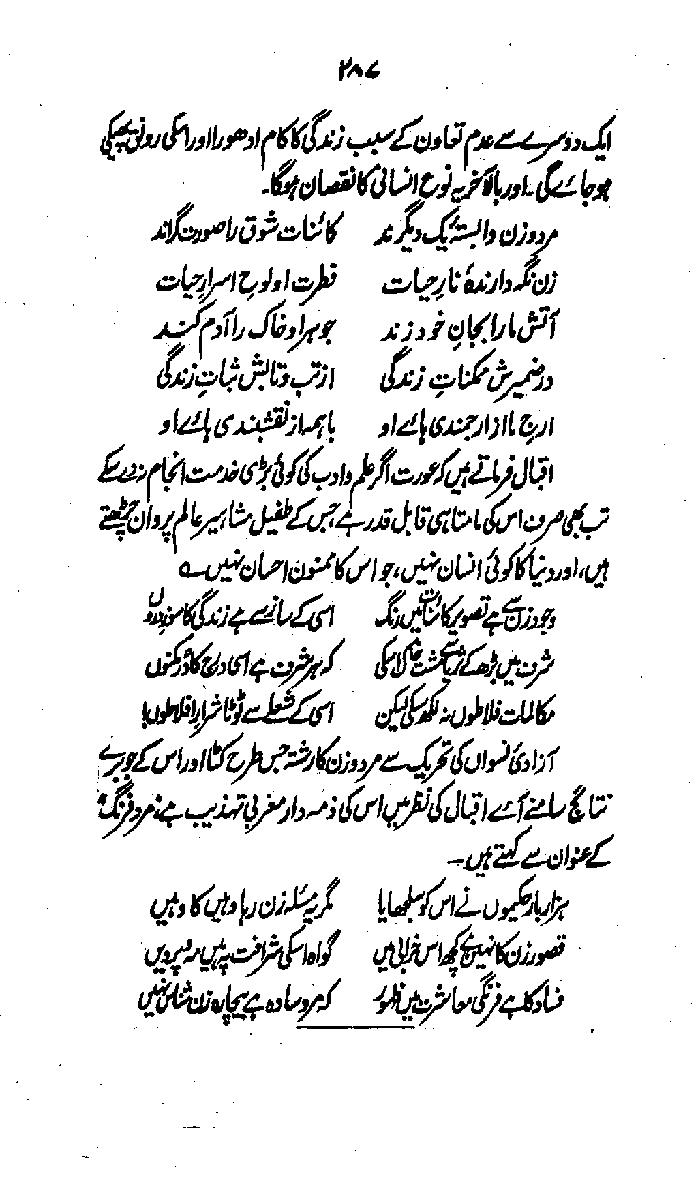 ۲۸۷
ایک دوسرے سے عدم تعاون کے سبب زندگی کا کام ادھورا اور اسکی رونق پھیکی
ہو جائے گی۔ اور بالآخر یہ نوع انسانی کا نقصان ہوگا۔
مرد و زن وابستۂ یک دیگرند کائنات شوق را صورت گراند
زن نگہ دارندۂ نارِ حیات فطرت او لوحِ اسرارِ حیات
آتش ما را بجانِ خود زند جوہر او خاک را آدم کند
در ضمیرش ممکناتِ زندگی از تب و تابش ثباتِ زندگی
ارجِ ما از ارجمندی ہائے او باہمہ از نقشبندی ہائے او
اقبال فرماتے ہیں کہ عورت اگر علم و ادب کی کوئی بڑی خدمت انجام نہ دے سکے
تب بھی صرف اس کی مامتا ہی قابل قدر ہے جس کے طفیل مشاہیر عالم پروان چڑھتے
ہیں، اور دنیا کا کوئی انسان نہیں، جو اس کا ممنون احسان نہیں ؎
وجود زن سے ہے تصویر کائنات میں رنگ اسی کے ساز سے ہے زندگی کا سوز دروں
شرف میں بڑھ کے ثریا سے مشت خاک اسکی کہ ہر شرف ہے اسی درج کا در مکنوں
مکالمات فلاطوں نہ لکھ سکی لیکن اسی کے شعلے سے ٹوٹا شرار افلاطوں!
آزادئ نسواں کی تحریک سے مرد و زن کا رشتہ جس طرح کٹا اور اس کے جو برے
نتائج سامنے آئے اقبال کی نظر میں اس کی ذمہ دار مغربی تہذیب ہے، "مرد فرنگ"
کے عنوان سے کہتے ہیں۔
ہزار بار حکیموں نے اس کو سلجھایا مگر یہ مسئلہ زن رہا وہیں کا وہیں
قصور زن کا نہیں ہے کچھ اس خرابی میں گواہ اسکی شرافت پہ ہیں مہ و پرویں
فساد کا ہے فرنگی معاشرت میں ظہور کہ مرد سادہ ہے بیچارہ زن شناس نہیں